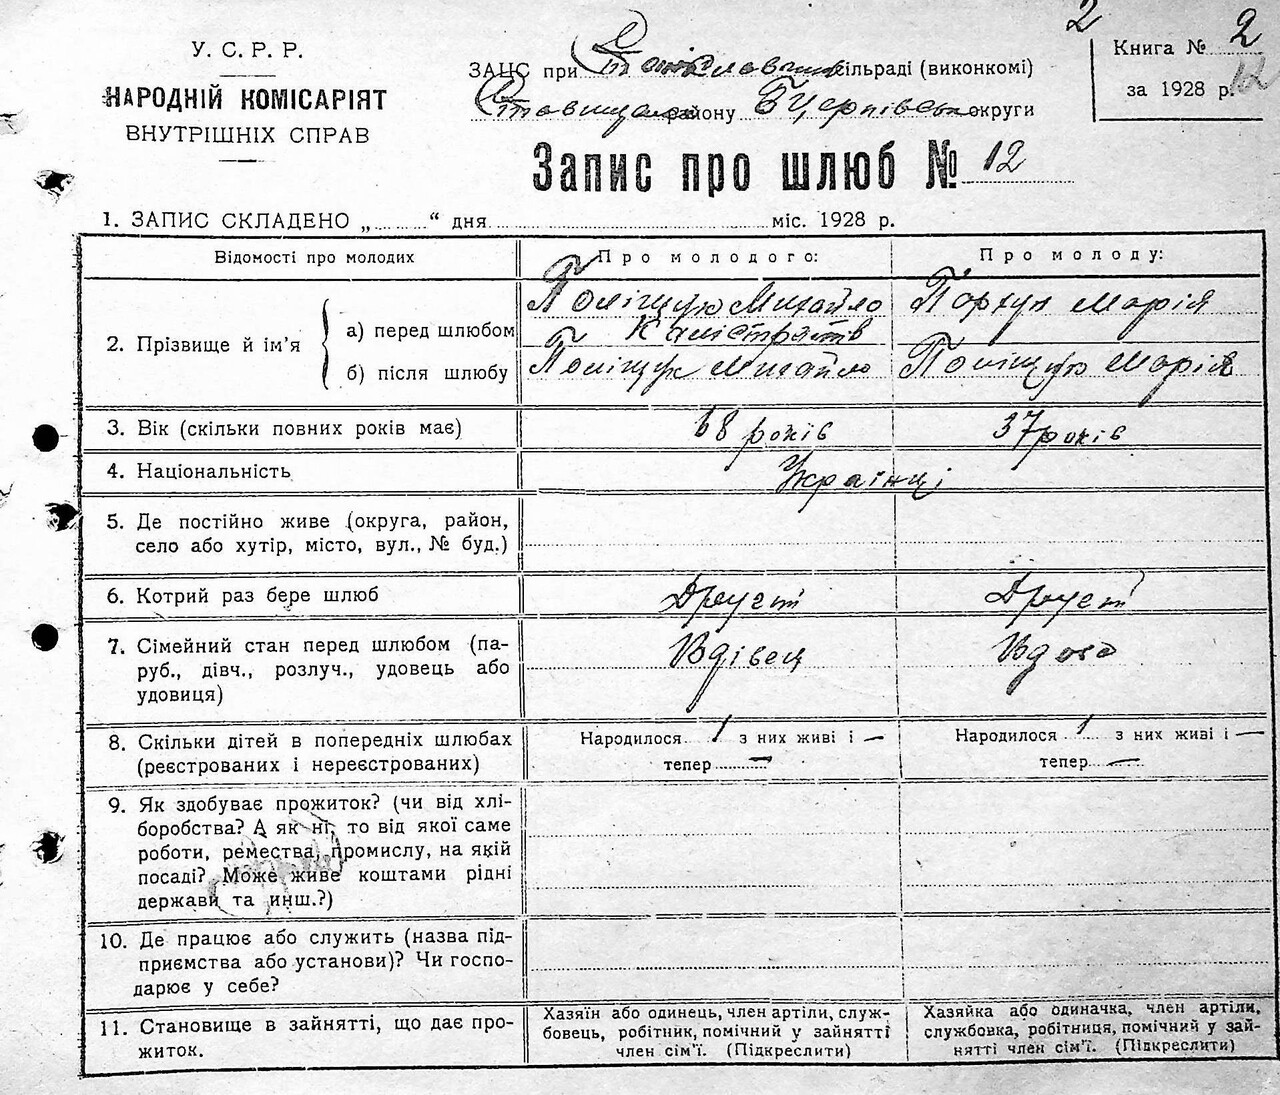 2
У. С. Р. Р.
НАРОДНІЙ КОМІСАРІЯТ
ВНУТРІШНІХ СПРАВ
ЗАЦС при сільраді (виконкомі)
Ставищан. району БЦерківськ. округи
Книга № 2
за 1928 р. 12
Запис про шлюб № 12
1. ЗАПИС СКЛАДЕНО „ “ дня міс. 1928 р.
Відомості про молодих
Про молодого:
Про молоду:
2. Прізвище й ім’я
а) перед шлюбом
Поліщук Михайло
Калістратів
Марія
б) після шлюбу
Поліщук Михайло
Поліщук Марія
3. Вік (скільки повних років має)
68 років
37 років
4. Національність
Українці
5. Де постійно живе (округа, район,
село або хутір, місто, вул., № буд.)
6. Котрий раз бере шлюб
Другий
Другий
7. Сімейний стан перед шлюбом (па-
руб., дівч., розлуч., удовець або
удовиця)
Вдівец
Вдова
8. Скільки дітей в попередніх шлюбах
(реєстрованих і нереєстрованих)
Народилося 1 з них живі і —
тепер —
Народилося 1 з них живі і —
тепер —
9. Як здобуває прожиток? (чи від хлі-
боробства? А як ні, то від якої саме
роботи, ремества, промислу, на якій
посаді? Може живе коштами рідні
держави та инш.?)
10. Де працює або служить (назва під-
приємства або установи)? Чи госпо-
дарює у себе?
11. Становище в зайнятті, що дає про-
житок.
Хазяїн або одинець, член артіли, служ-
бовець, робітник, помічний у зайнятті
член сім’ї. (Підкреслити)
Хазяйка або одиначка, член артіли,
службовка, робітниця, помічний у зай-
нятті член сім’ї. (Підкреслити)